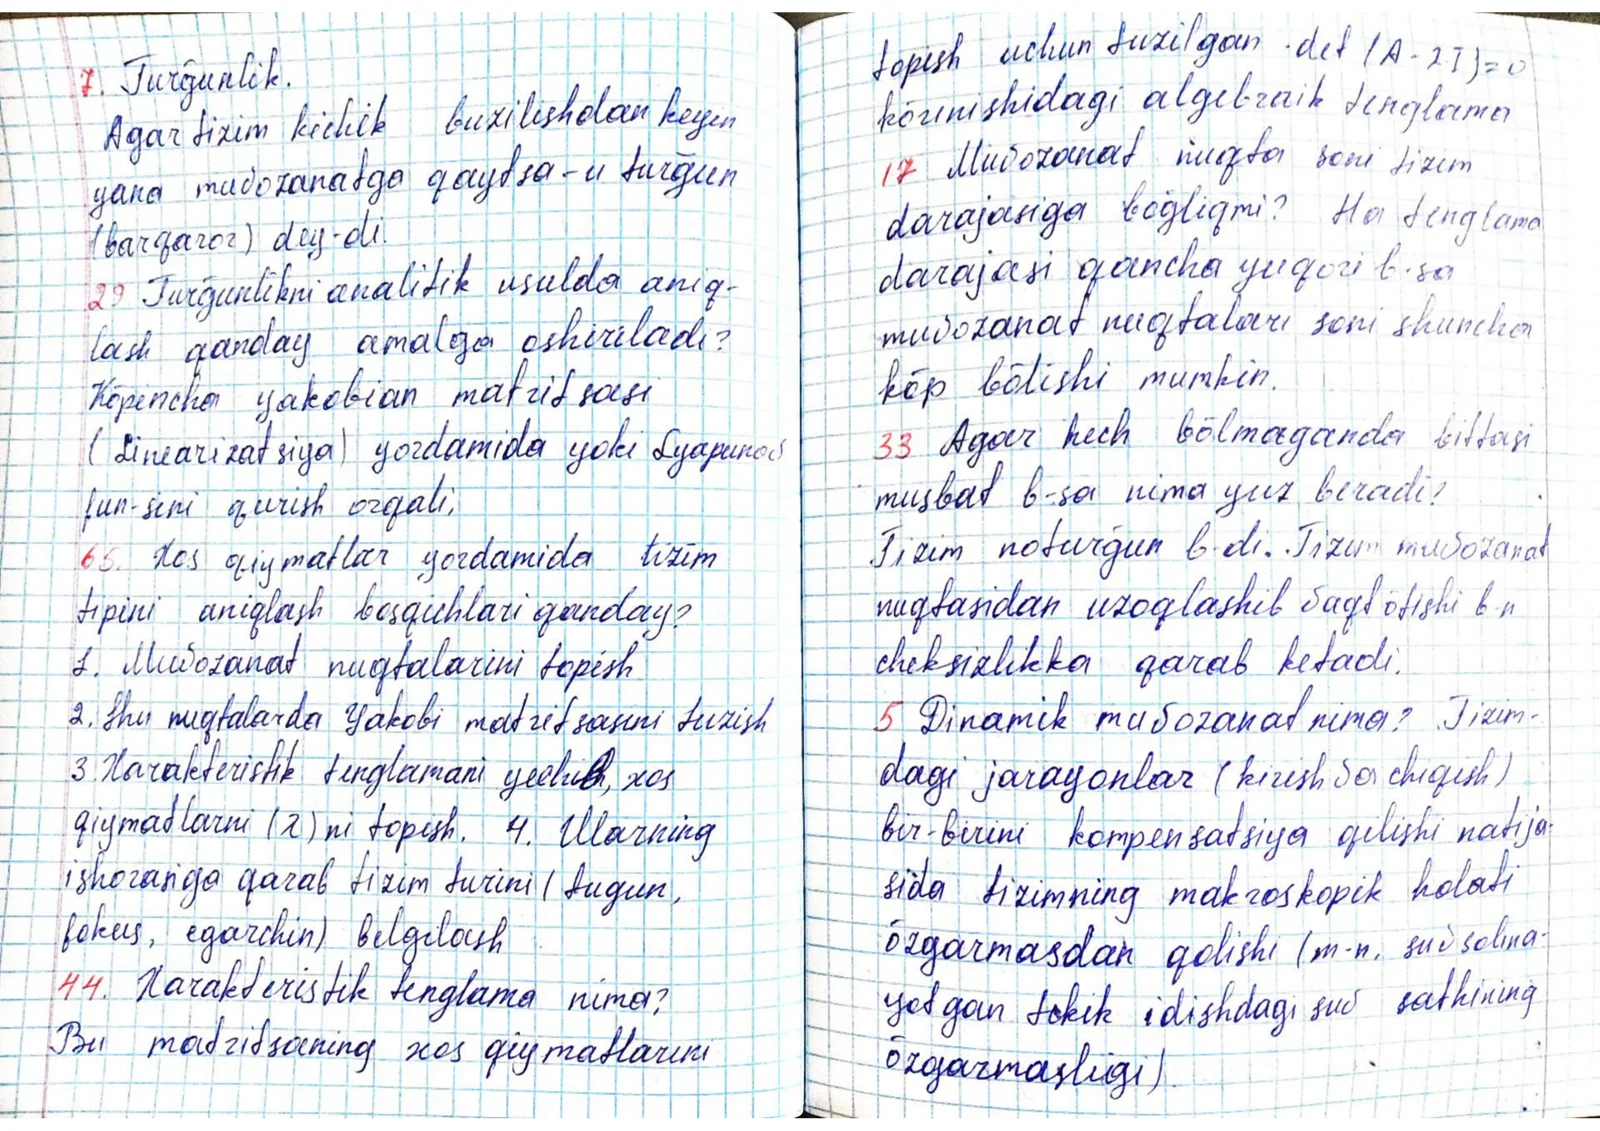 7. Turḡunlik.
Agar tizim kichik buzilishdan keyin
yana muvozanatga qaytsa-u turḡun
(barqaror) dey-di.
29 Turḡunlikni analitik usulda aniq-
lash qanday amalga oshiriladi?
Kōpincha yakobian matritsasi
(Linearizatsiya) yordamida yoki Lyapunov
fun-sini qurish orqali.
65. Xos qiymatlar yordamida tizim
tipini aniqlash bosqichlari qanday?
1. Muvozanat nuqtalarini topish
2. Shu nuqtalarda Yakobi matritsasini tuzish
3 Xarakteristik tenglamani yechib, xos
qiymatlarni (λ) ni topish. 4. Ularning
ishorasiga qarab tizim turini (tugun,
fokus, egarchin) belgilash
44. Xarakteristik tenglama nima?
Bu matritsaning xos qiymatlarini
topish uchun tuzilgan det (A-λI)=0
kōrinishidagi algebraik tenglama
17 Muvozanat nuqta soni tizim
darajasiga bōgliqmi? Ha tenglama
darajasi qancha yuqori b-sa
muvozanat nuqtalari soni shuncha
kōp bōlishi mumkin.
33 Agar hech bōlmaganda bittasi
musbat b-sa nima yuz beradi?
Tizim noturḡun b-di. Tizim muvozanat
nuqtasidan uzoqlashib vaqt ōtishi b-n
cheksizlikka qarab ketadi.
5 Dinamik muvozanat nima? Tizim-
dagi jarayonlar (kirish va chiqish)
bir-birini kompensatsiya qilishi natija-
sida tizimning makroskopik holati
ōzgarmasdan qolishi (m-n, suv solina-
yotgan tekik idishdagi suv sathining
ōzgarmasligi)